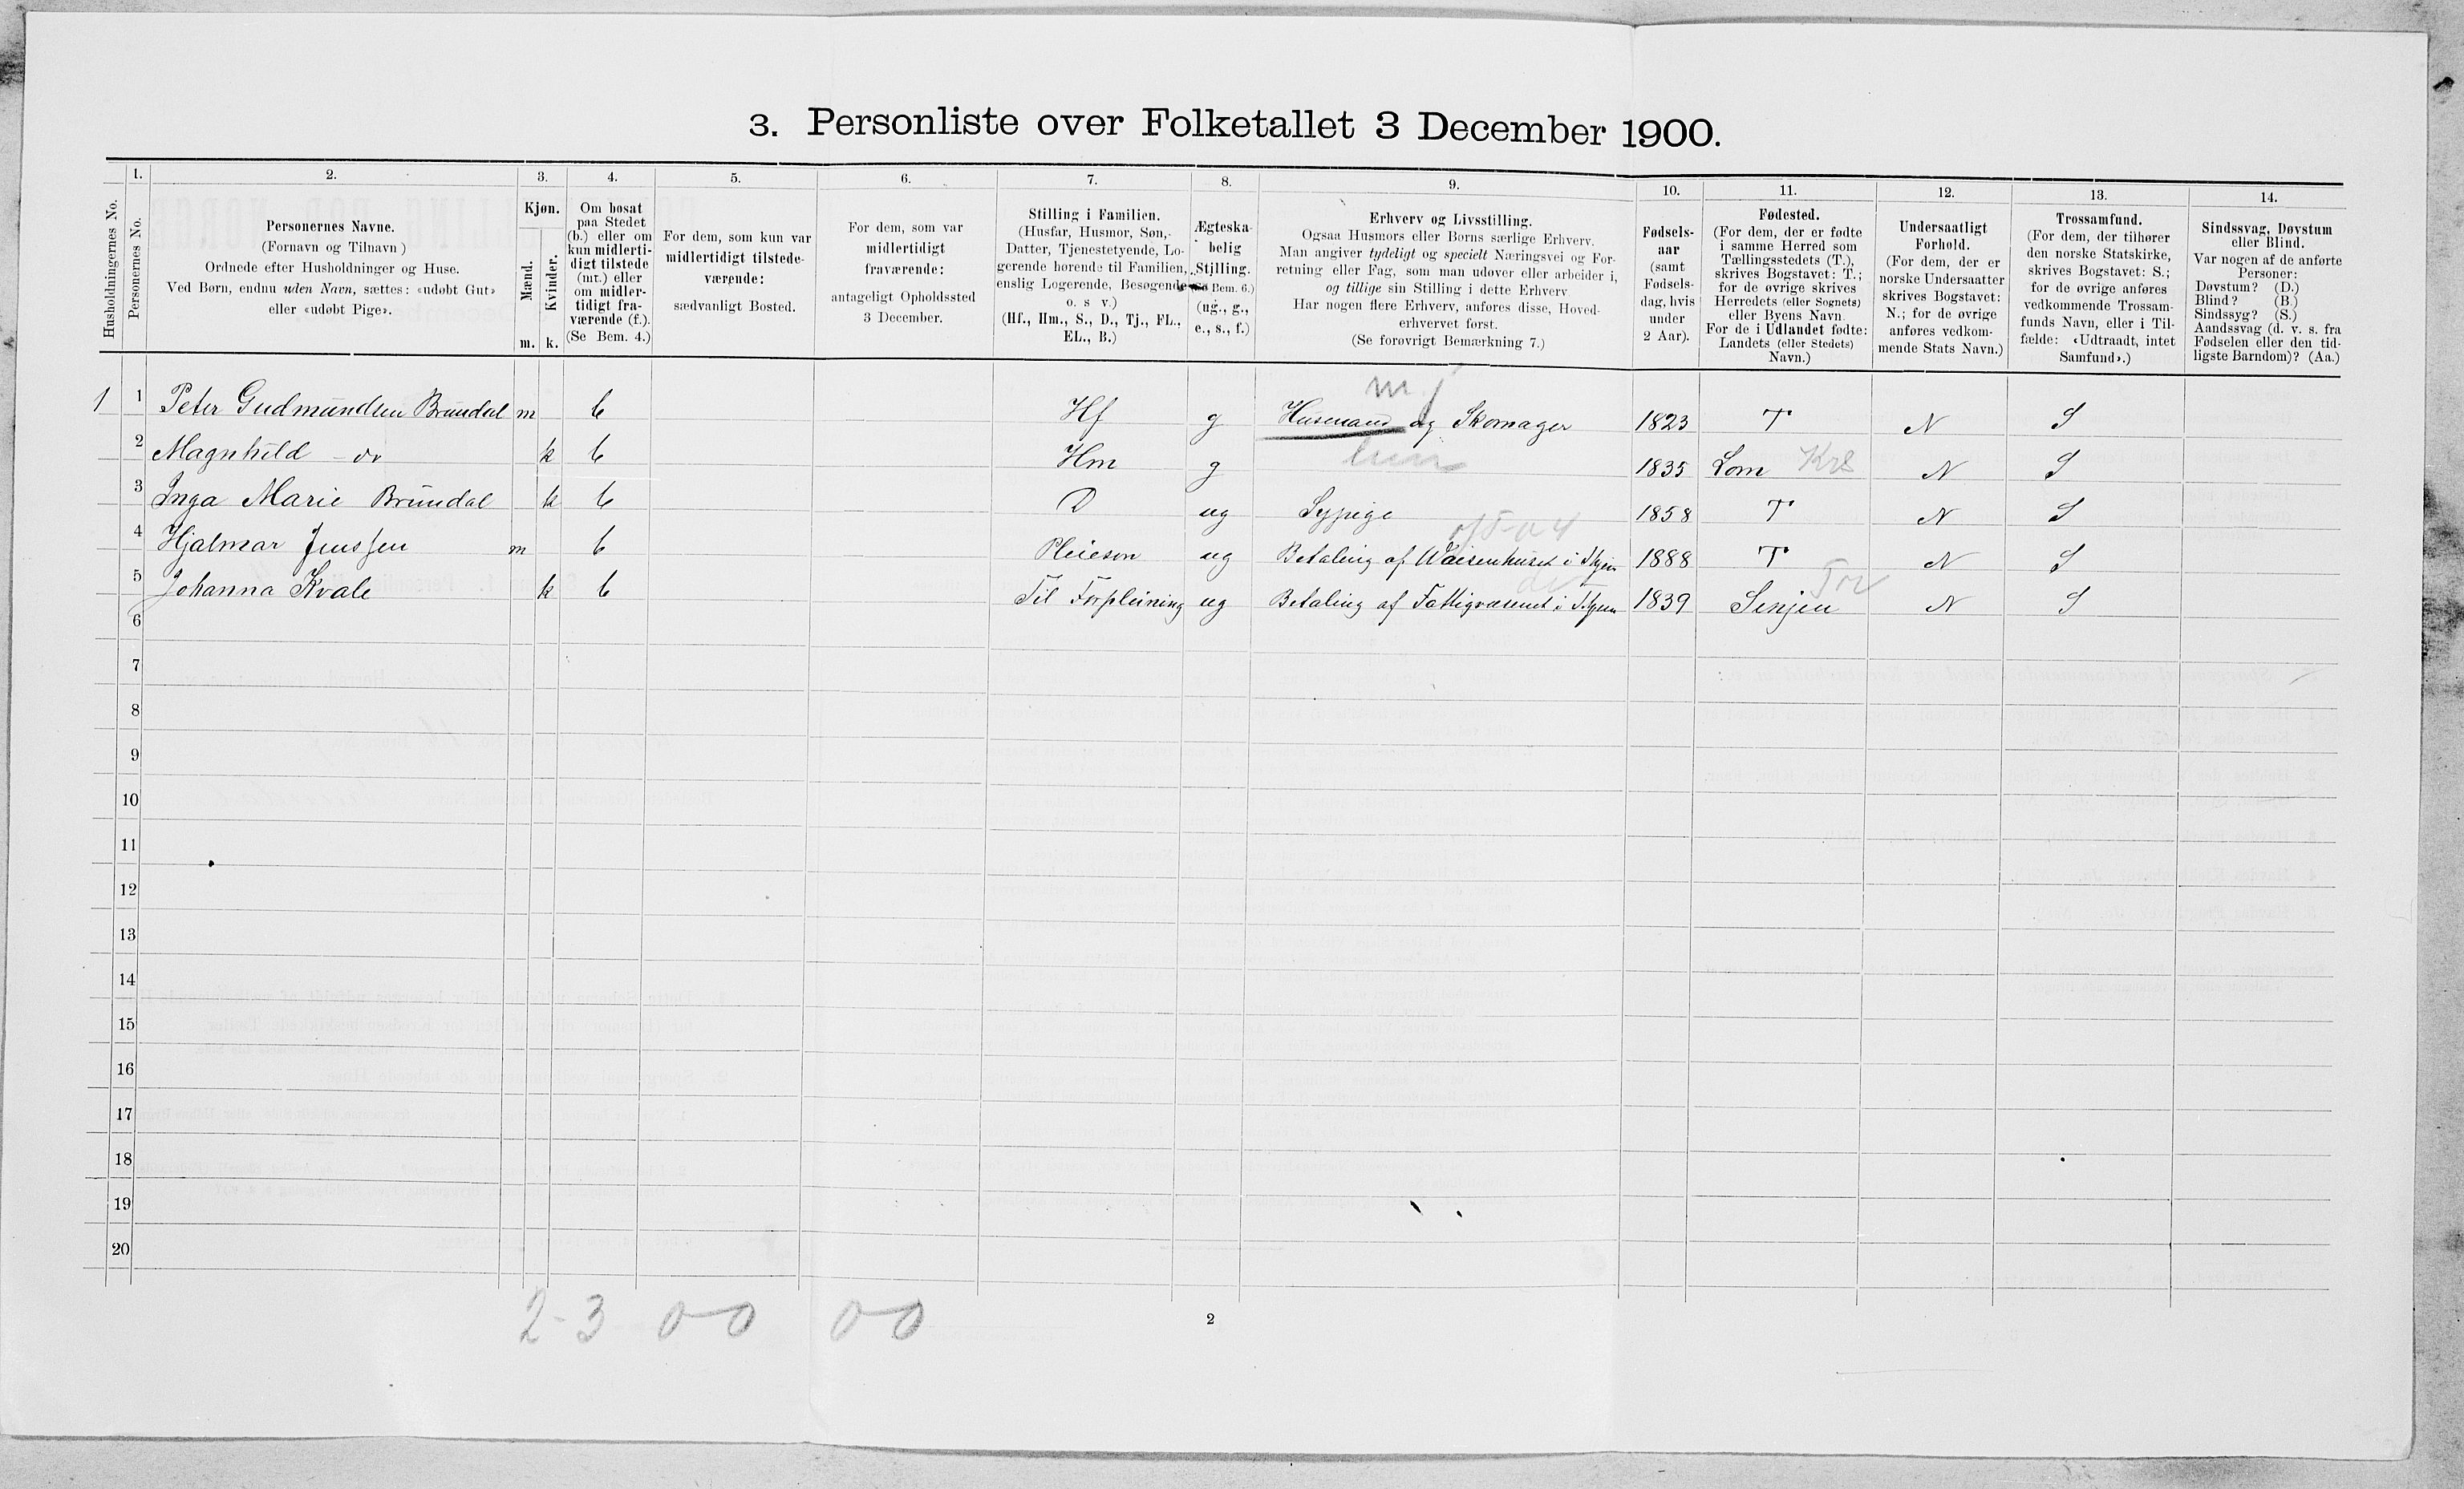 3. Personliste over Folketallet 3 December 1900.
Husholdningernes No.
1.
Personernes No.
2.
Personernes Navne.
(Fornavn og Tilnavn)
Ordnede efter Husholdninger og Huse.
Ved Børn, endnu uden Navn, sættes: «udøbt Gut»
eller «udøbt Pige».
3.
Kjøn.
Mænd.
Kvinder.
m. k.
4.
Om bosat
paa Stedet
(b.) eller om
kun midlerti-
digt tilstede
(mt.) eller
om midler-
tidigt fra-
værende (f.).
(Se Bem. 4.)
5.
For dem, som kun var
midlertidigt tilstede-
værende:
sædvanligt Bosted.
6.
For dem, som var
midlertidigt
fraværende:
antageligt Opholdssted
3 December.
7.
Stilling i Familien.
(Husfar, Husmor, Søn,
Datter, Tjenestetyende, Lo-
gerende hørende til Familien,
enslig Logerende, Besøgende
o. s v.)
(Hf., Hm., S., D., Tj., FL.,
EL., B.)
8.
Ægteska-
belig
Stilling.
Bem. 6.)
(ug., g.,
e., s., f.)
9.
Erhverv og Livsstilling.
Ogsaa Husmors eller Børns særlige Erhverv.
Man angiver tydeligt og specielt Næringsvei og For-
retning eller Fag, som man udøver eller arbeider i,
og tillige sin Stilling i dette Erhverv.
Har nogen flere Erhverv, anføres disse, Hoved-
erhvervet først.
(Se forøvrigt Bemærkning 7.)
10.
Fødsels-
aar
(samt
Fødsels-
dag, hvis
under
2 Aar).
11.
Fødested.
(For dem, der er fødte
i samme Herred som
Tællingsstedets (T.),
skrives Bogstavet: T.;
for de øvrige skrives
Herredets (eller Sognets)
eller Byens Navn.
For de i Udlandet fødte:
Landets (eller Stedets)
Navn.)
12.
Undersaatligt
Forhold.
(For dem, der er
norske Undersaatter
skrives Bogstavet:
N.; for de øvrige
anføres vedkom-
mende Stats Navn.)
13.
Trossamfund.
(For dem, der tilhører
den norske Statskirke,
skrives Bogstavet: S.;
for de øvrige anføres
vedkommende Trossam-
funds Navn, eller i Til-
fælde: «Udtraadt, intet
Samfund».)
14.
Sindssvag, Døvstum
eller Blind.
Var nogen af de anførte
Personer:
Døvstum? (D.)
Blind? (B.)
Sindssyg? (S.)
Aandssvag (d. v. s. fra
Fødselen eller den tid-
ligste Barndom)? (Aa.)
1 1 Peter Gudmundsen Brundal m b Hf g Husmand og Skomager 1823 T N S
2 Magnhild do k b Hm g 1835 Lom Krs N S
3 Inga Marie Brundal k b D ug Sypige 1858 T N S
4 Hjalmar Jenssen m b Pleieson ug Betaling af Waisenhuset i Thjem 1888 T N S
5 Johanna Kvale k b Til Forpleining ug Betaling af Fattigvæsenet i Thjem 1839 Senjen N S
6
7
8
9
10
11
12
13
14
15
16
17
18
19
20
2-3 0-0 0-0
2